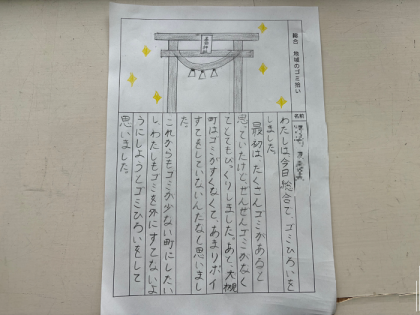 総合 地域のゴミ拾い
名前
わたしは今日総合で、ゴミひろいを
しました。
最初は、たくさんゴミがあると
思っていたけど、ぜんぜんゴミがなく
てとてもびっくりしました。あと、大槻
町はゴミがすくなくて、あまりポイ
すてをしていないんだなと思いまし
た。
これからもゴミが少ない町にしたい
し、わたしもゴミを外にすてないよ
うにしようとゴミひろいをして
思いました。